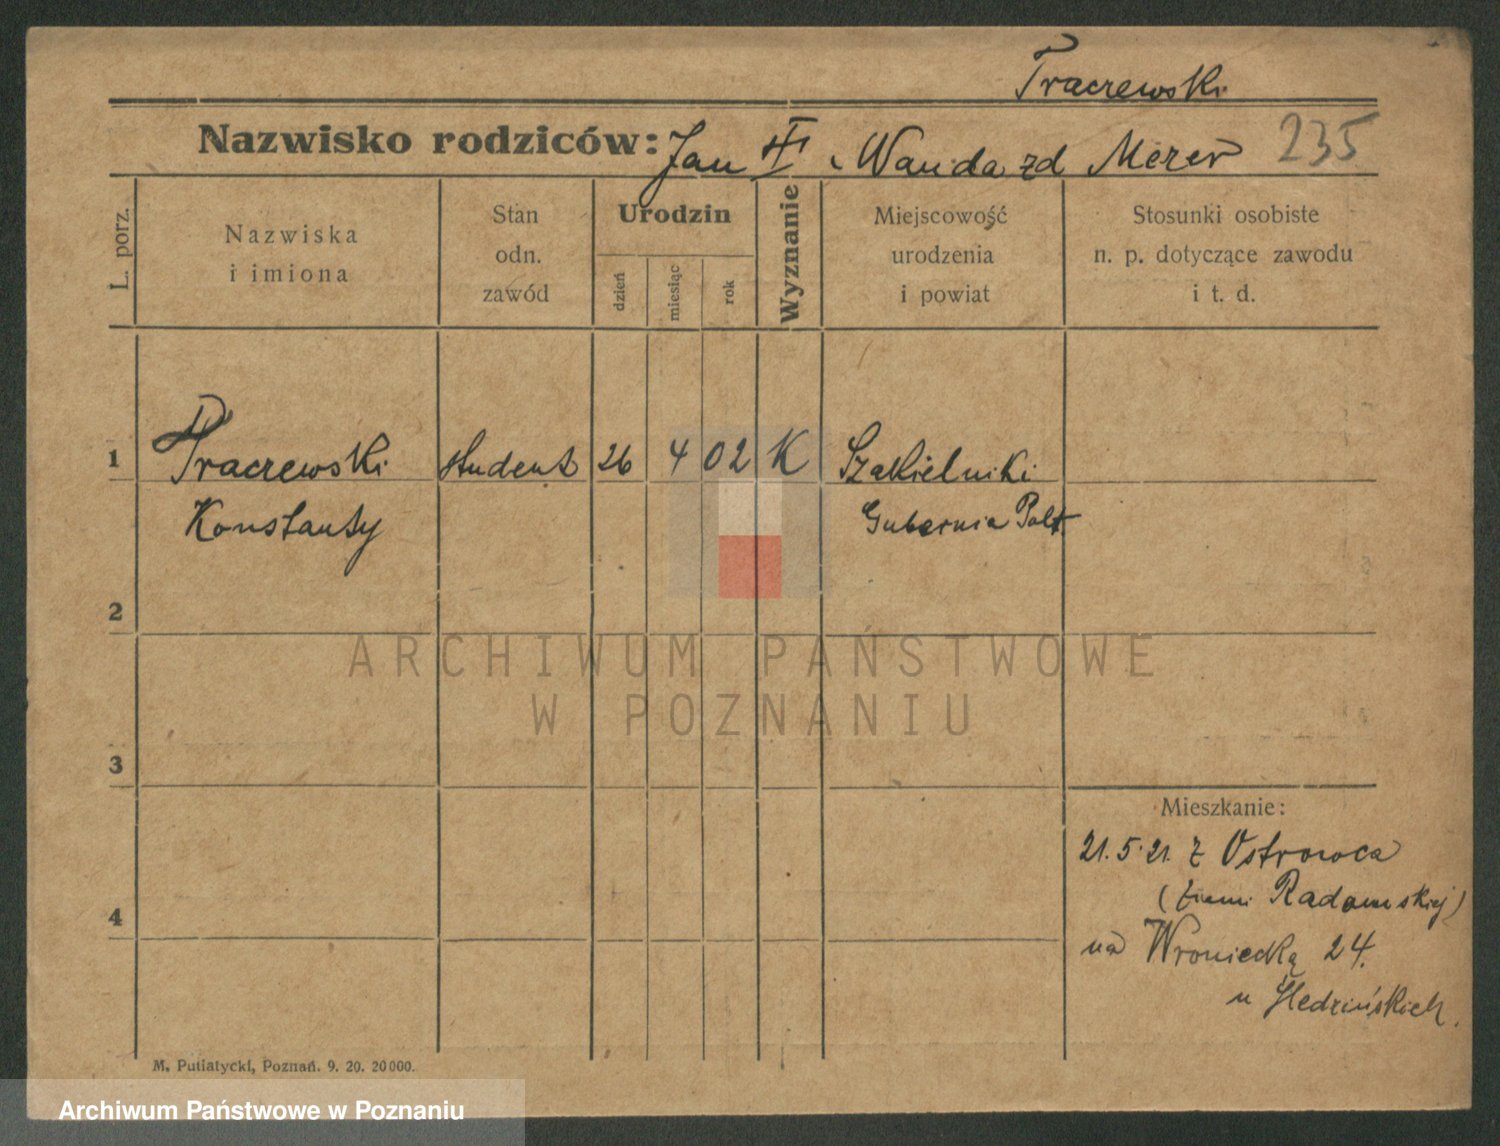 Traczewski
Nazwisko rodziców: Jan i Wanda zd Mezer 235
L. porz.
Nazwiska
i imiona
Stan
odn.
zawód
Urodzin
dzień
miesiąc
rok
Wyznanie
Miejscowość
urodzenia
i powiat
Stosunki osobiste
n. p. dotyczące zawodu
i t. d.
1 Traczewski student 26 4 02 K Szakielniki
Konstanty Gubernia Połt.
2
ARCHIWUM PAŃSTWOWE
W POZNANIU
3
Mieszkanie:
21.5.21. z Ostrowca
(ziemi Radomskiej)
4
na Wroniecką 24.
u
M. Putiatycki, Poznań. 9. 20. 20000.
Archiwum Państwowe w Poznaniu